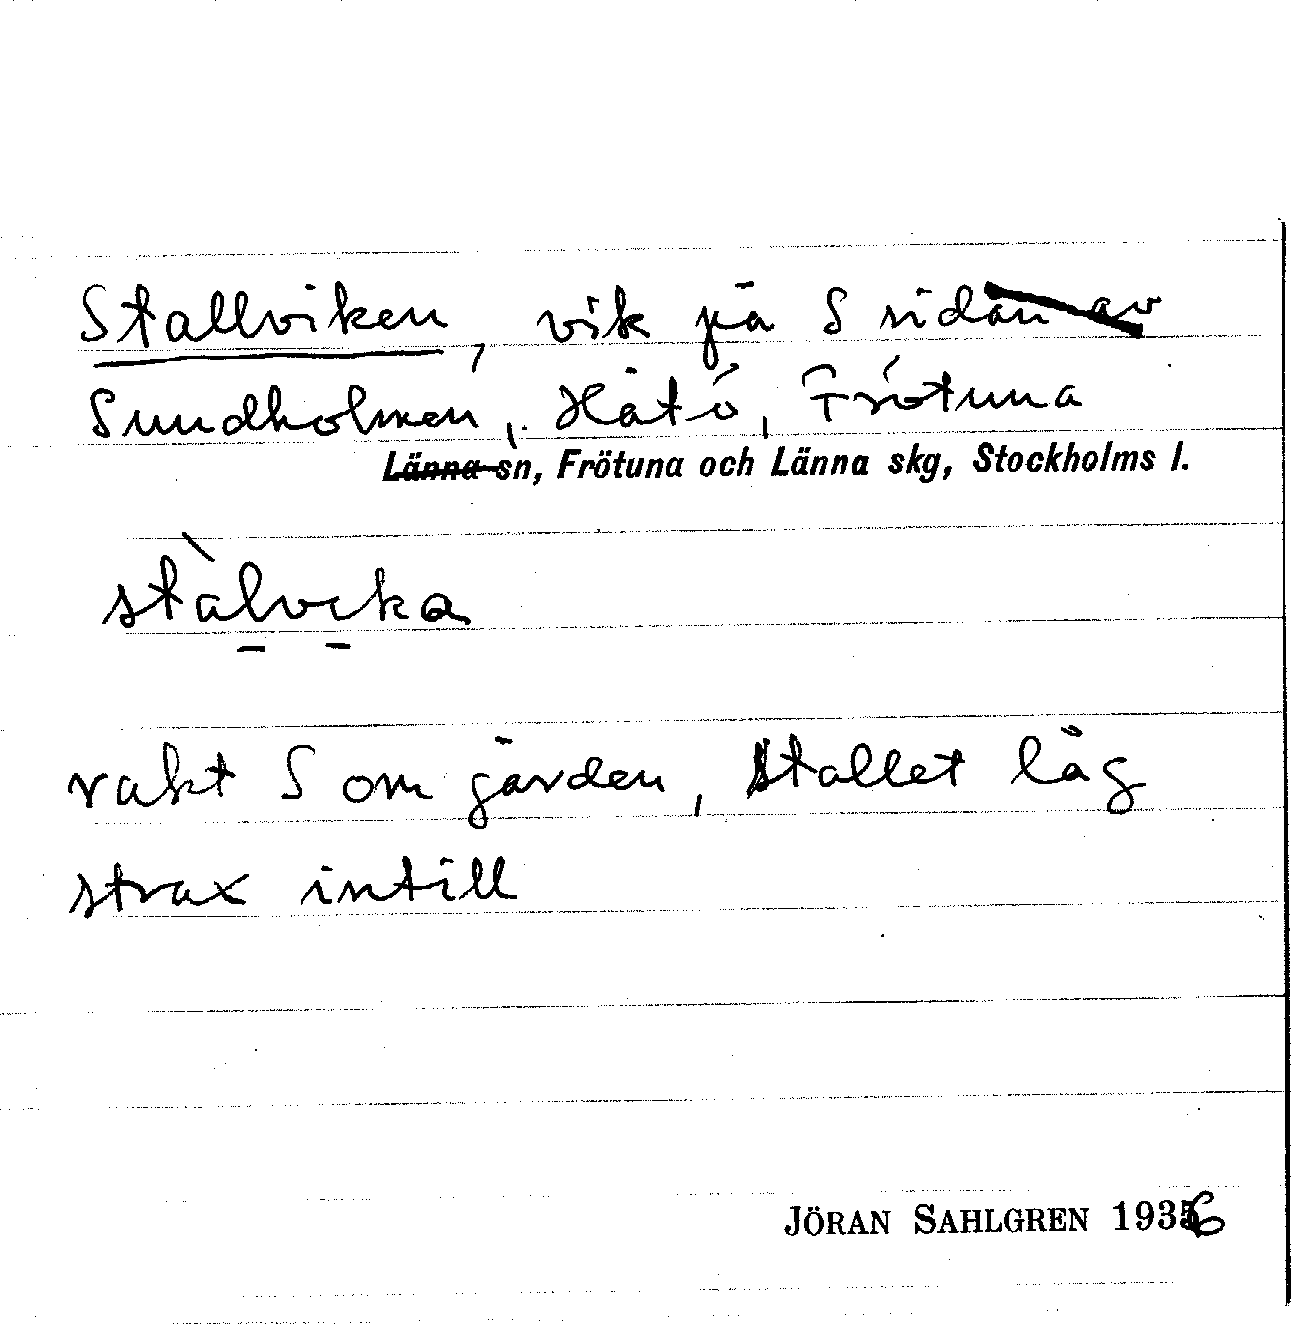 Stallviken, vik på S sidan av
Sundholmen, Hatö, Frötuna
Länna sn, Frötuna och Länna skg, Stockholms l.
stàlvıka
rakt S om gården, stallet låg
strax intill
JÖRAN SAHLGREN 1936